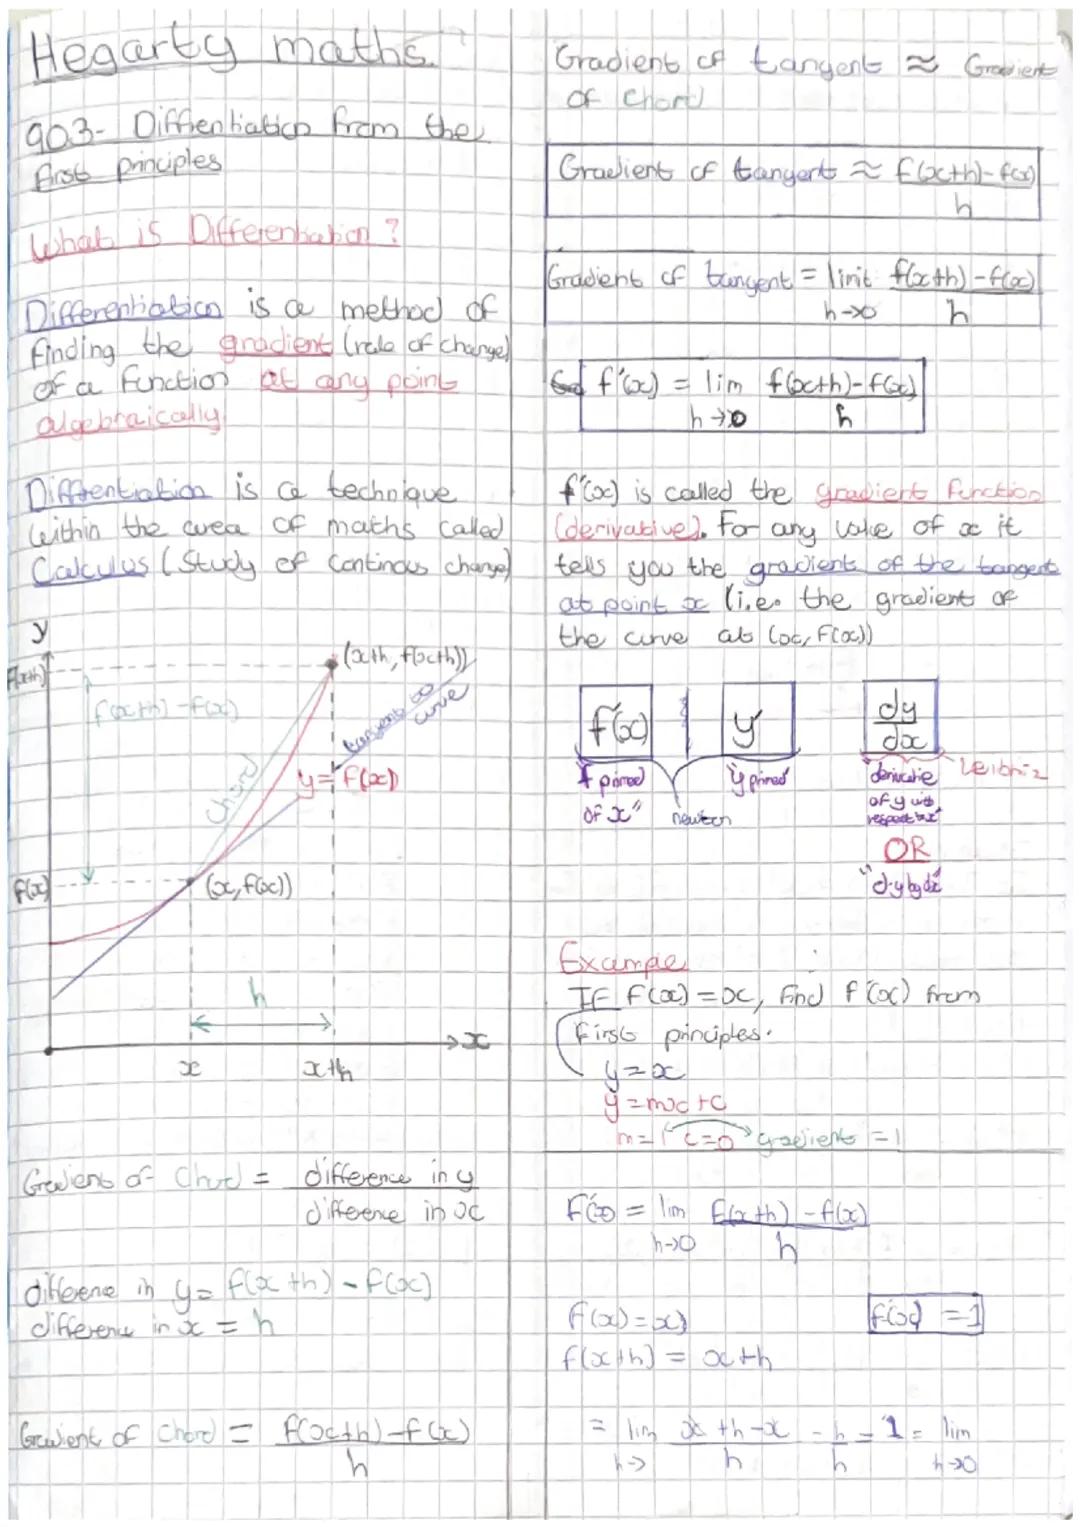 Hegarty maths.
903- Diffientiation from the
first principles
What is Differentiation?
Differentiation is a method of
finding the gradient (rate of change)
of a function at any point
algebraically
Diffrentiation is a technique
within the area of maths called
Calculus (Study of Continous change)
y
f(x+h)
(x+h, f(x+h))
f(x+h)-f(x)
tangent to
curve
Chord
y=f(x)
f(x)
(x, f(x))
h
x
x
x+h
Gradient of Chord = difference in y
difference in x
difference in y = f(x+h) - f(x)
difference in x = h
Gradient of Chord = f(x+h)-f(x)
h
Gradient of tangent ≈ Gradient
of Chord
Gradient of tangent ≈ f(x+h)-f(x)
h
Gradient of tangent = limit f(x+h)-f(x)
h→0 h
f'(x) = lim f(x+h)-f(x)
h→0 h
f'(x) is called the gradient function
(derivative). For any value of x it
tells you the gradient of the tangent
at point x (i.e. the gradient of
the curve at (x, f(x))
f'(x) y' dy
dx
"f primed "y primed" "derivative Leibniz
of x" newton of y with
respect to x"
OR
"dy by dx"
Example
IF f(x) = x, find f'(x) from
first principles.
y=x
y=mx+c
m=1 c=0 gradient =1
f'(x) = lim f(x+h)-f(x)
h→0 h
f(x)=x f'(x) =1
f(x+h) = x+h
= lim x+h-x = h = 1 = lim
h→ h h h→0